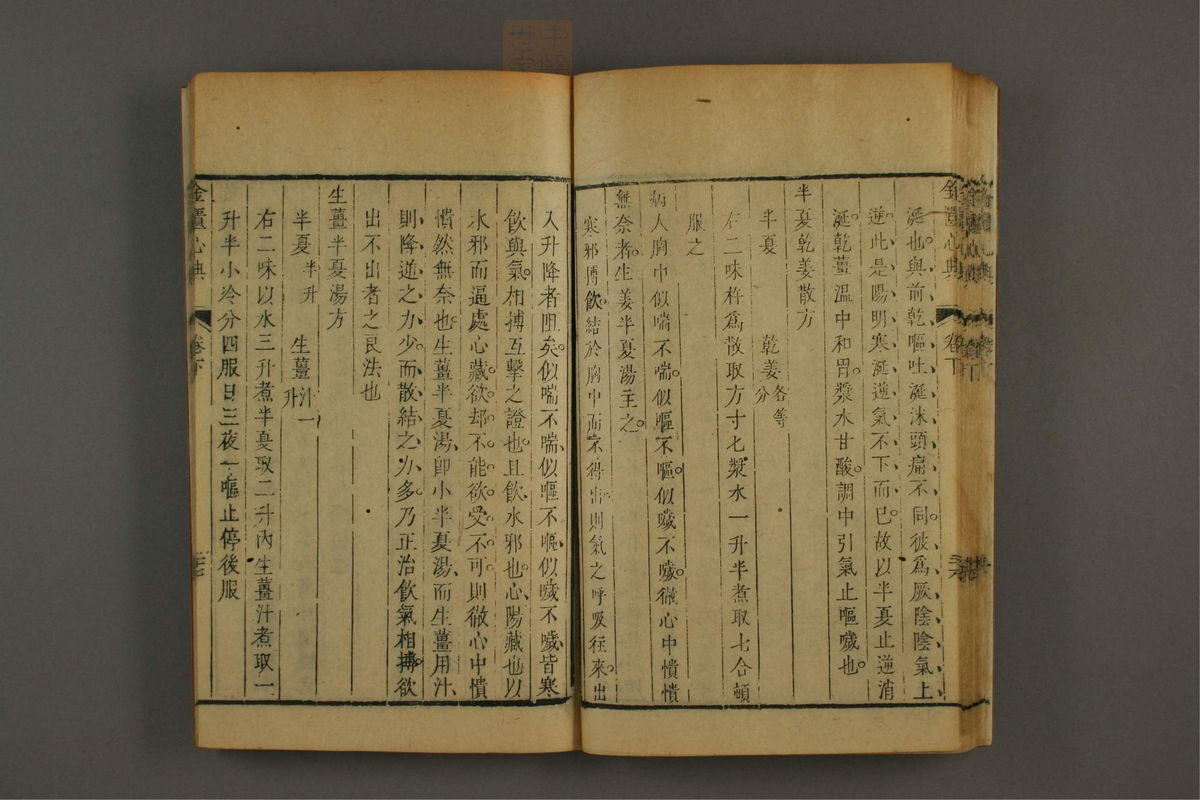 金匱心典 卷下 三六
涎也與前乾嘔吐涎沫頭痛不同彼爲厥陰陰氣上
逆此是陽明寒涎逆氣不下而已故以半夏止逆消
涎乾薑溫中和胃漿水甘酸調中引氣止嘔噦也
半夏乾姜散方
半夏 乾姜各等分
右二味杵爲散取方寸匕漿水一升半煮取七合頓
服之
病人胸中似喘不喘似嘔不嘔似噦不噦徹心中憒憒
無奈者生姜半夏湯主之
寒邪搏飲結於胸中而不得出則氣之呼吸往來出
入升降者阻矣似喘不喘似嘔不嘔似噦不噦皆寒
飲與氣相搏互擊之證也且飲水邪也心陽藏也以
水邪而逼處心藏欲却不能欲受不可則徹心中憒
憒然無奈也生薑半夏湯卽小半夏湯而生薑用汁
則降逆之力少而散結之力多乃正治飲氣相搏欲
出不出者之良法也
生薑半夏湯方
半夏半升 生薑汁一升
右二味以水三升煮半夏取二升內生薑汁煮取一
升半小冷分四服日三夜一嘔止停後服
金匱心典 卷下 三七